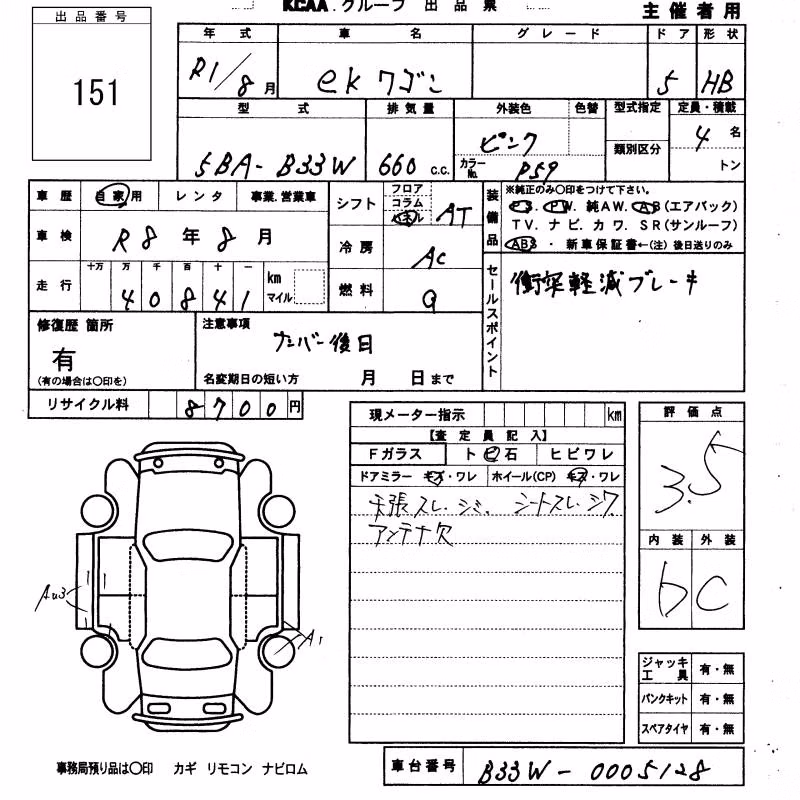 KCAA.グループ 出品票
主催者用
出品番号
151
年式 車名 グレード ドア 形状
R1/8月 ekワゴン 5 HB
型式 排気量 外装色 色替 型式指定 定員・積載
5BA-B33W 660 c.c. ピンク カラーNo. P59 類別区分 4名 トン
車歴 自家用 レンタ 事業.営業車
車検 R8年8月
走行 十万 万 千 百 十 一
40841 km マイル
シフト フロア コラム パネル AT
冷房 AC
燃料 G
装備品 ※純正のみ〇印をつけて下さい。
PS. PW. 純AW. AB(エアバック)
TV. ナビ. カワ. SR(サンルーフ)
ABS ・ 新車保証書←(注) 後日送りのみ
セールスポイント 衝突軽減ブレーキ
修復歴 箇所
有
(有の場合は〇印を)
注意事項
ナンバー後日
名変期日の短い方 月 日まで
リサイクル料 8700円
現メーター指示 km
【査定員記入】
Fガラス ト ビ 石 ヒビワレ
ドアミラー キズ・ワレ ホイール(CP) キズ・ワレ
天張スレ.シミ. シートスレ.シワ
アンテナ欠
評価点
3.5
内装 外装
b C
AU3
A1
ジャッキ工具 有・無
パンクキット 有・無
スペアタイヤ 有・無
事務局預り品は〇印 カギ リモコン ナビロム
車台番号 B33W-0005128